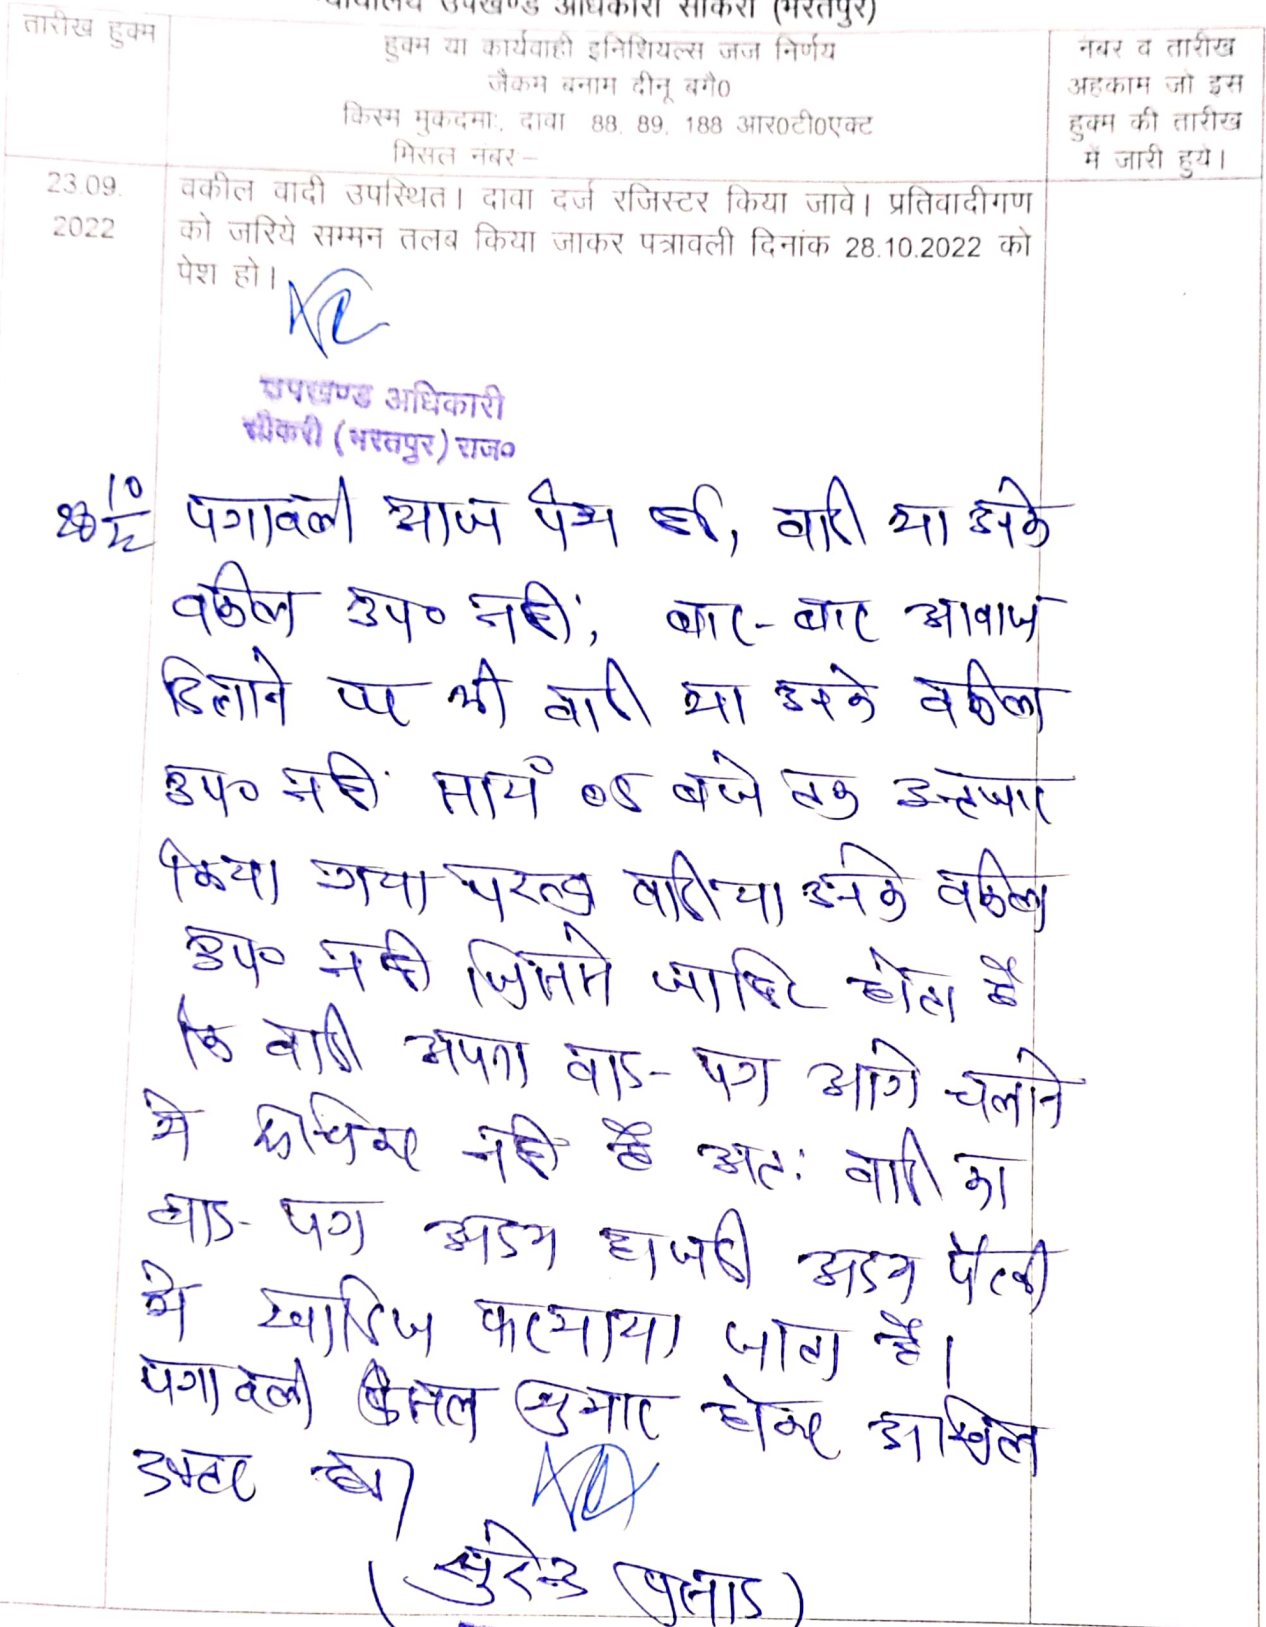 न्यायालय उपखण्ड अधिकारी सीकरी (भरतपुर)
तारीख हुक्म
हुक्म या कार्यवाही इनिशियल्स जज निर्णय
जैकम बनाम दीनू बगै0
किस्म मुकदमाः, दावा 88, 89, 188 आर0टी0एक्ट
मिसल नबर –
नबर व तारीख
अहकाम जो इस
हुक्म की तारीख
में जारी हुये।
23.09.
2022
वकील वादी उपस्थित। दावा दर्ज रजिस्टर किया जावे। प्रतिवादीगण
को जरिये सम्मन तलब किया जाकर पत्रावली दिनांक 28.10.2022 को
पेश हो।
उपखण्ड अधिकारी
सीकरी (भरतपुर) राज०
28/10
पत्रावली आज पेश हुई, वादी या उनके
वकील उप० नहीं, बार-बार आवाज
दिलाने पर भी वादी या उनके वकील
उप० नहीं सायं 05 बजे तक इन्तजार
किया गया परन्तु वादी या उनके वकील
उप० नहीं जिससे जाहिर होता है
कि वादी अपना वाद-पत्र आगे चलाने
मे नहीं है अतः वादी का
वाद-पत्र अदम हाजरी अदम पैरवी
मे खारिज फरमाया जाता है।
पत्रावली फैसल शुमार होकर दाखिल
दफ्तर हो।
(सुरेन्द्र प्रसाद)